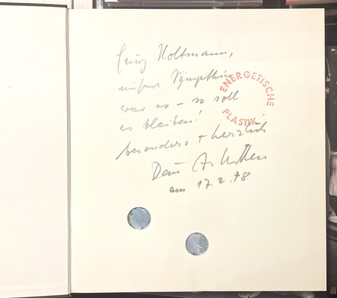 Holtmann,
unsere Sympathie
war es – so soll
es bleiben!
besonders + herzlich
Dein
am 17.2.78
ENERGETISCHE
PLASTIK